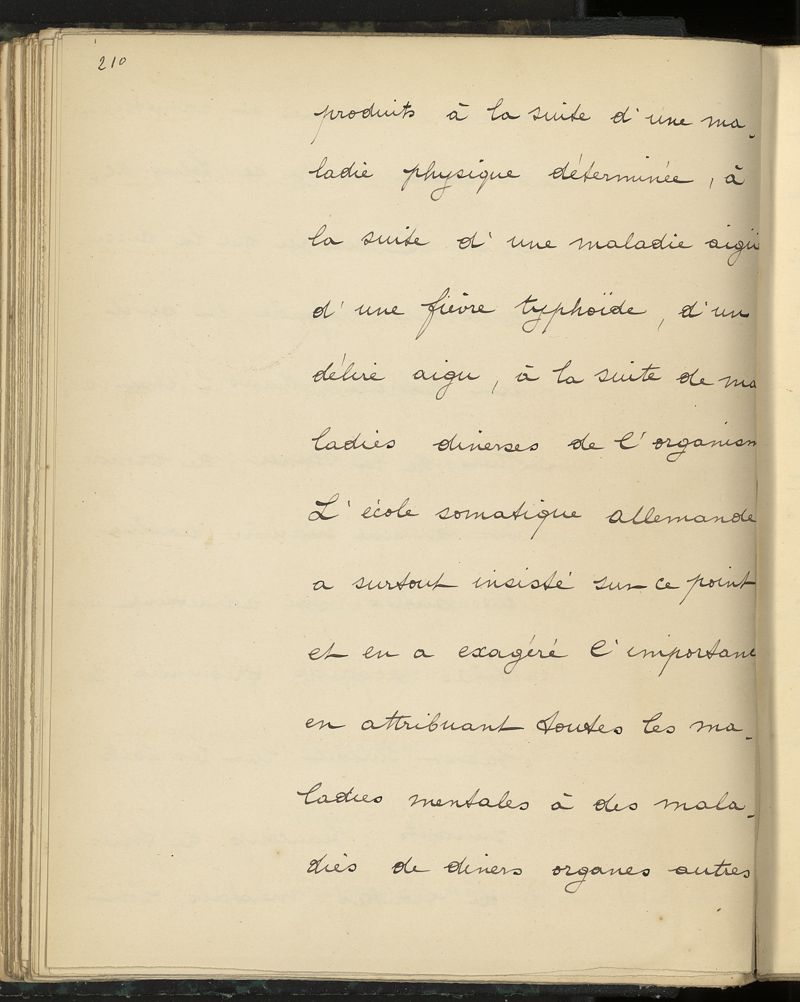 210
produits à la suite d'une ma-
ladie physique déterminée, à
la suite d'une maladie aigüe
d'une fièvre typhoïde, d'un
délire aigu, à la suite de ma
ladies diverses de l'organism
L'école somatique allemande
a surtout insisté sur ce point
et en a exagéré l'importanc
en attribuant toutes les ma-
ladies mentales à des mala-
diès de divers organes autres